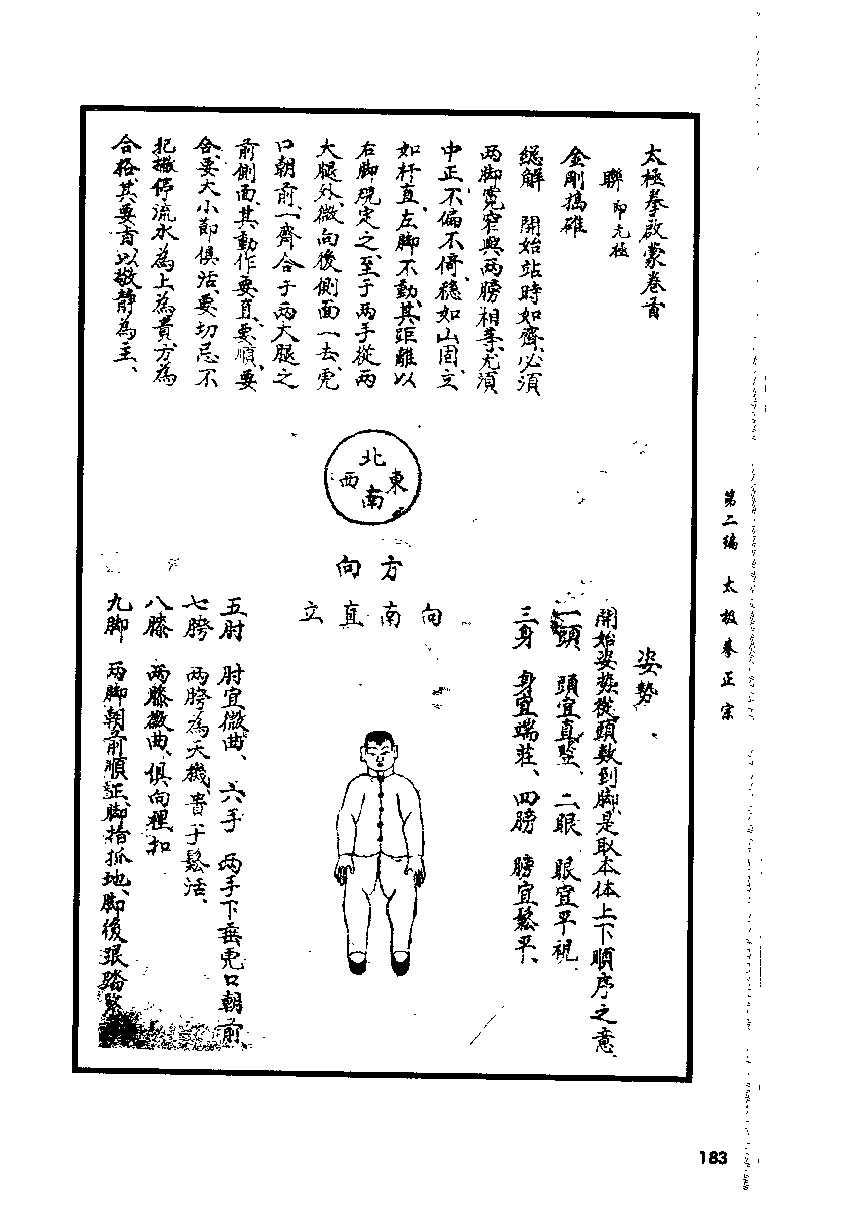 太極拳啟蒙卷首
聯 即无极
金剛搗碓
總解 開始站時如齊、必須
兩脚寬窄與兩膀相等、尤須
中正、不偏不倚、穩如山固、立
如杆直、左脚不動、其距離以
右脚規定之、至于兩手從兩
大腿外、微向後側面一去、虎
口朝前、一齊合于兩大腿之
前側面、其動作要直、要順、要
合、要大小節俱活、要切忌不
犯撇停流水為上為貴、方為
合格、其要旨、以敬靜為主、
北
西 東
南
方向
向南直立
姿勢
開始姿勢、從頭数到脚、是取本体上下順序之意、
一頭 頭宜直竪、二眼 眼宜平視、
三身 身宜端莊、四膀 膀宜鬆平、
五肘 肘宜微曲、六手 兩手下垂虎口朝前、
七胯 兩胯為天機、貴于鬆活、
八膝 兩膝微曲、俱向裡扣
九脚 兩脚朝前順正、脚指抓地、脚後跟踏緊
第二编 太极拳正宗
183